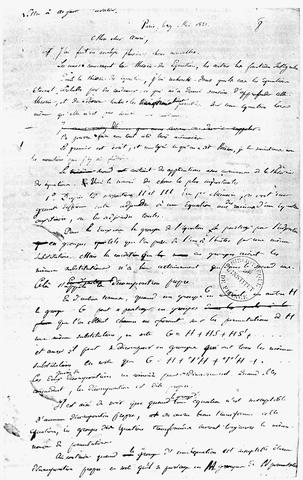 Paris, le 29 Mai 1832.
Mon cher Ami,
J'ai fait en analyse plusieurs choses nouvelles.
Les unes concernent la théorie des Équations, les autres les fonctions Intégrales.
Dans la théorie des équations, j'ai recherché dans quels cas les équations
étaient résolubles par des radicaux, ce qui m'a donné occasion d'approfondir cette
théorie, et de décrire toutes les transformations possibles sur une équation lors
même qu'elle n'est pas soluble par radicaux.
On pourra faire avec tout cela trois mémoires.
Le premier est écrit, et malgré ce qu'en a dit Poisson, je le maintiens avec
les corrections que j'y ai faites.
Le second contient des applications assez curieuses de la théorie
des équations. Voici le résumé des choses les plus importantes.
1° D'après les propositions II et III du 1er Mémoire, on voit une
grande différence entre adjoindre à une équation une des racines d'une équation
auxiliaire, ou les adjoindre toutes.
Dans les deux cas le groupe de l'équation se partage par l'adjonction
en groupes tels que l'on passe de l'un à l'autre par une même
substitution. Mais la condition que ces groupes aient les
mêmes substitutions n'a lieu certainement que dans le second cas.
Cela s'appelle la décomposition propre.
En d'autres termes, quand un groupe G en contient un autre H
le groupe G peut se partager en groupes
que l'on obtient chacun en opérant sur les permutations de H
une même substitution, en sorte que G = H + HS + HS' +
et aussi il peut se décomposer en groupes qui ont tous les mêmes
substitutions en sorte que G = H + TH + T'H +
Ces deux décompositions ne coïncident pas ordinairement. Quand elles
coïncident, la décomposition est dite propre.
Il est aisé de voir que quand le groupe d'une équation n'est susceptible
d'aucune décomposition propre, on aura beau transformer cette
équation, les groupes des équations transformées auront toujours le même
nombre de permutations.
Au contraire, quand le groupe d'une équation est susceptible d'une
décomposition propre en sorte qu'il se partage en M groupes de N permutations